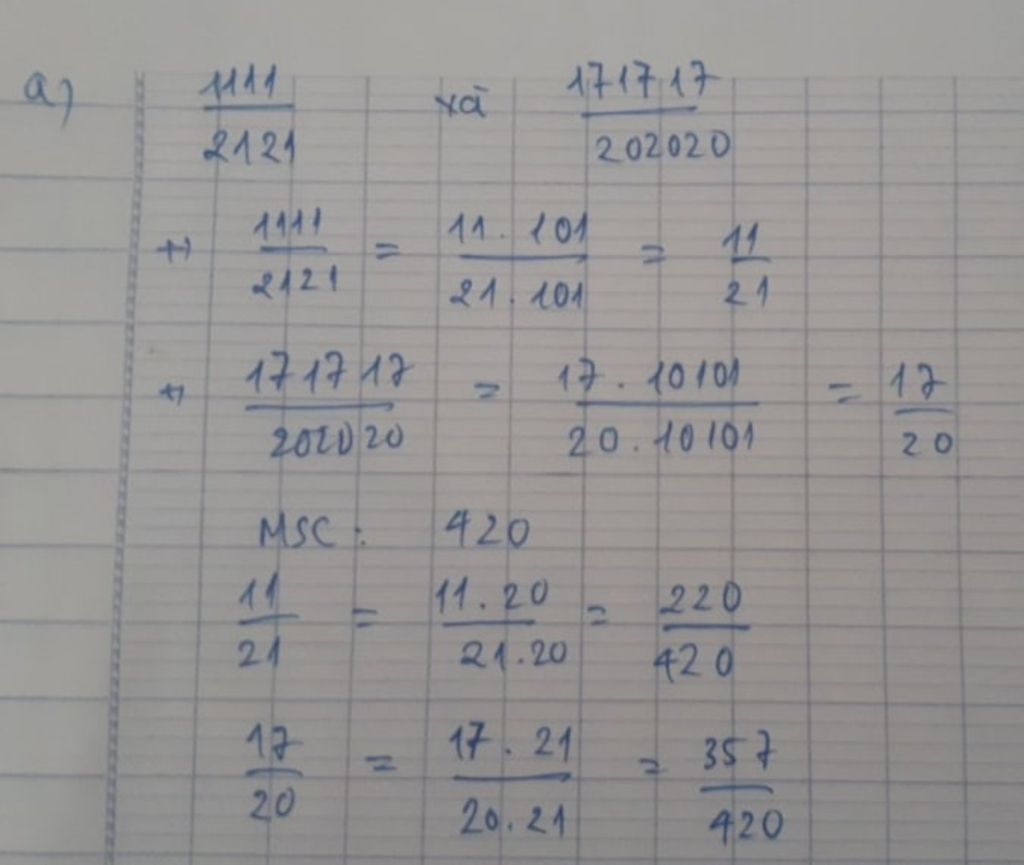 a) 1111/2121 và 171717/202020
+) 1111/2121 = 11.101/21.101 = 11/21
+) 171717/202020 = 17.10101/20.10101 = 17/20
MSC: 420
11/21 = 11.20/21.20 = 220/420
17/20 = 17.21/20.21 = 357/420